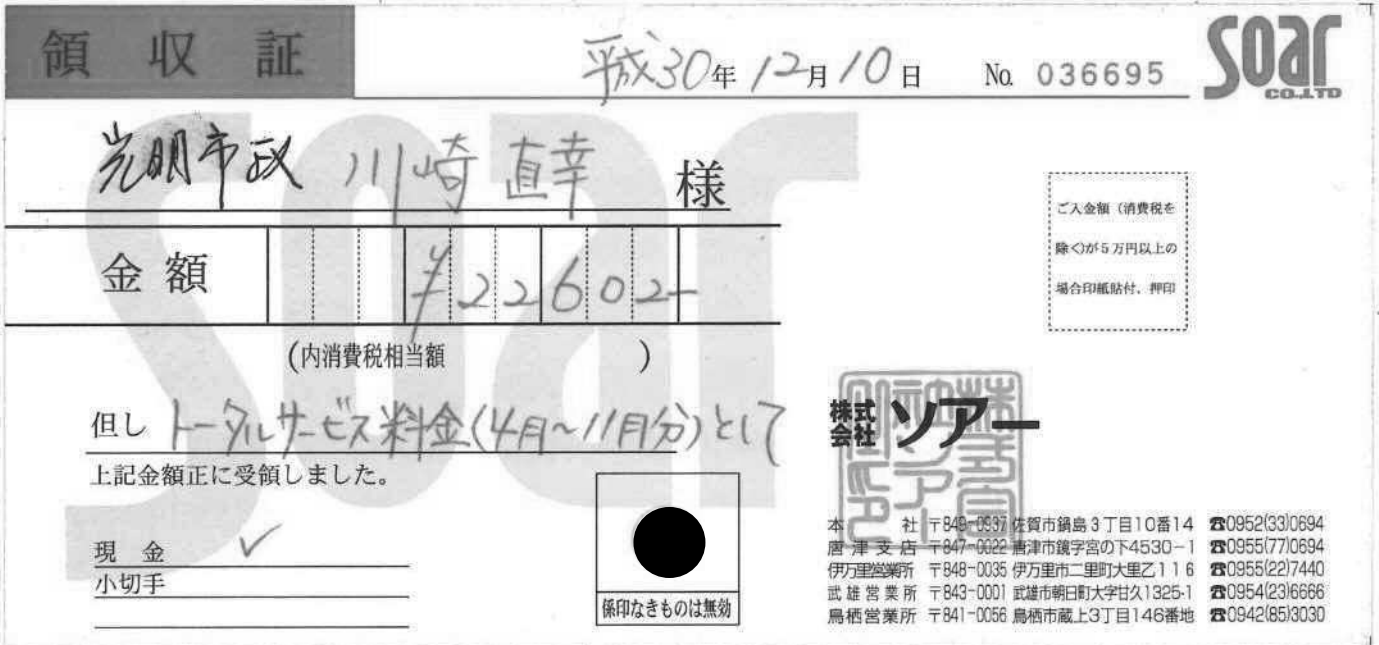 領収証
平成30年12月10日 No. 036695
soar
CO.,LTD
光明市政 川崎 直幸 様
金額 ¥22602-
(内消費税相当額 )
但し トータルサービス料金(4月~11月分)として
上記金額正に受領しました。
現金 ✓
小切手
係印なきものは無効
ご入金額(消費税を
除く)が5万円以上の
場合印紙貼付、押印
株式会社 ソアー
本社 〒849-0937 佐賀市鍋島3丁目10番14 ☎0952(33)0694
唐津支店 〒847-0022 唐津市鏡字宮の下4530-1 ☎0955(77)0694
伊万里営業所 〒848-0035 伊万里市二里町大里乙116 ☎0955(22)7440
武雄営業所 〒843-0001 武雄市朝日町大字甘久1325-1 ☎0954(23)6666
鳥栖営業所 〒841-0056 鳥栖市蔵上3丁目146番地 ☎0942(85)3030